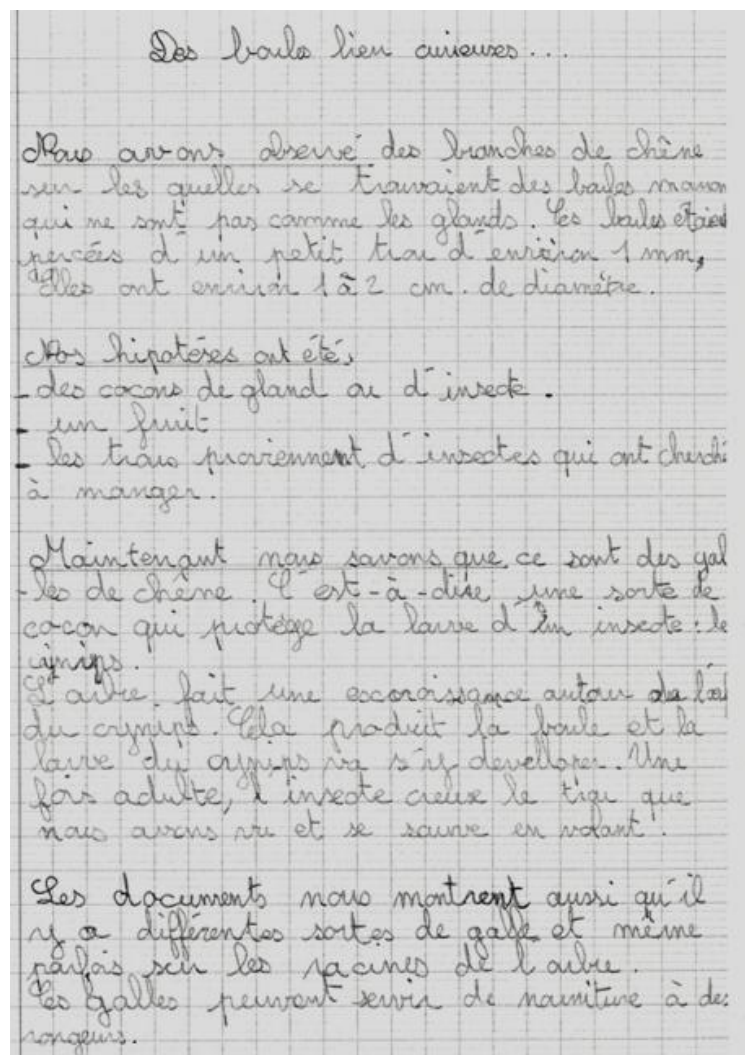 Des boules bien curieuses...
Nous avons observé des branches de chêne
sur les quelles se trouvaient des boules marron
qui ne sont pas comme les glands. Ces boules étaient
percées d'un petit trou d'environ 1 mm,
elles ont environ 1 à 2 cm. de diamètre.
Nos hipotéses ont été,
- des cocons de gland ou d'insecte.
- un fruit
- les trous proviennent d'insectes qui ont cherché
à manger.
Maintenant nous savons que ce sont des gal
-les de chêne. C'est-à-dire une sorte de
cocon qui protège la larve d'un insecte: le
cynips.
L'arbre fait une excoroissance autour de
du crynips. Cela produit la boule et la
larve du cynips va s'y develloper. Une
fois adulte, l'insecte creuse le que
nous avons vu et se sauve en volant.
Les documents nous montrent aussi qu'il
y a différentes sortes de galle et même
parfois sur les racines de l'arbre.
Ces galles peuvent servir de nourriture à des
rongeurs.